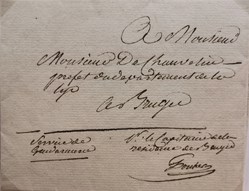 A Monsieur
Monsieur De Chauvelin
prefet du departement de la
lip
a Bruges
Service de
Gendarmerie
Le Capitaine de la
residence de Bruges